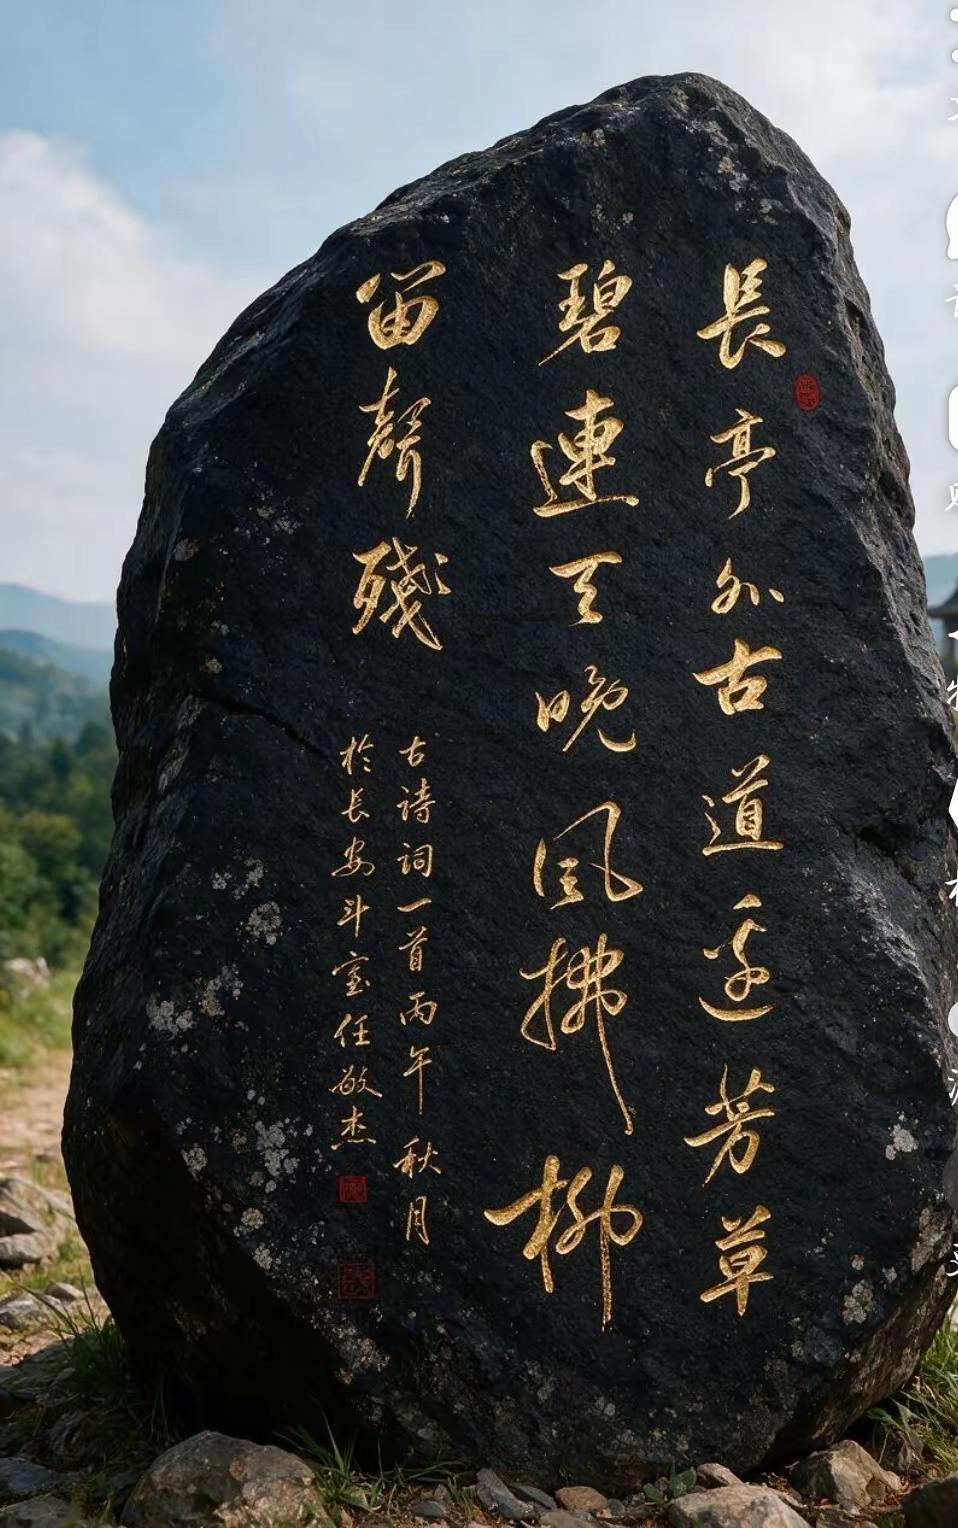 長亭外古道邊芳草
碧連天晚風拂柳
笛聲殘
古诗词一首丙午秋月
於长安斗室任敬杰